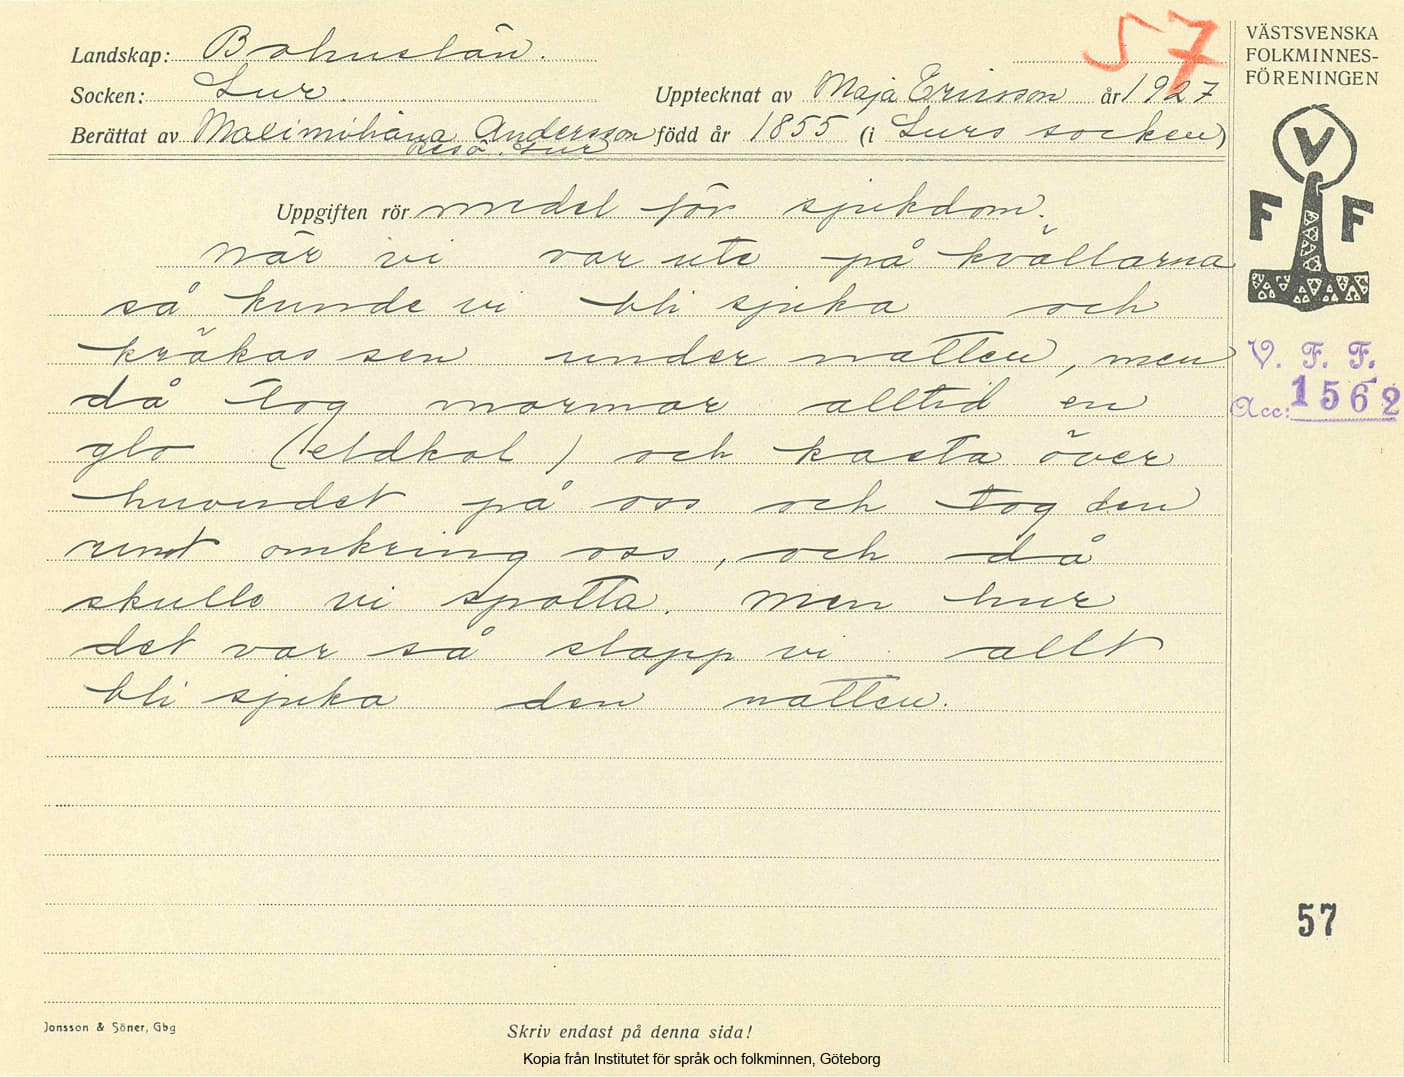 57
VÄSTSVENSKA
FOLKMINNES-
FÖRENINGEN
Landskap: Bohuslän.
Socken: Lur.
Upptecknat av Maja Ericsson år 1927
Berättat av Andersson född år 1855 (i Lurs socken)
Lur
V
F F
Uppgiften rör medel för sjukdom.
När vi var ute på kvällarna
så kunde vi bli sjuka och
kräkas sen under natten, men
då tog mormor alltid en
glo (eldkol) och kasta över
huvudet på oss och tog den
runt omkring oss, och då
skulle vi spotta. Men hur
det var så slapp vi allt
bli sjuka den natten.
V. F. F.
Acc: 1562
57
Jonsson & Söner, Gbg
Skriv endast på denna sida!
Kopia från Institutet för språk och folkminnen, Göteborg